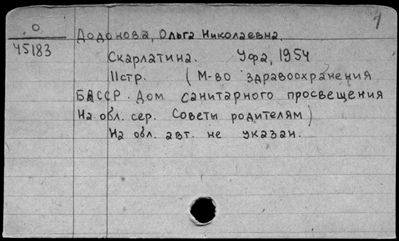 О
45183
Додонова, Ольга Николаевна.
1
Скарлатина. Уфа, 1954
11стр. (М-во здравоохранения
БАССР. Дом санитарного просвещения
На обл. сер. Советы родителям)
На обл. авт. не указан.